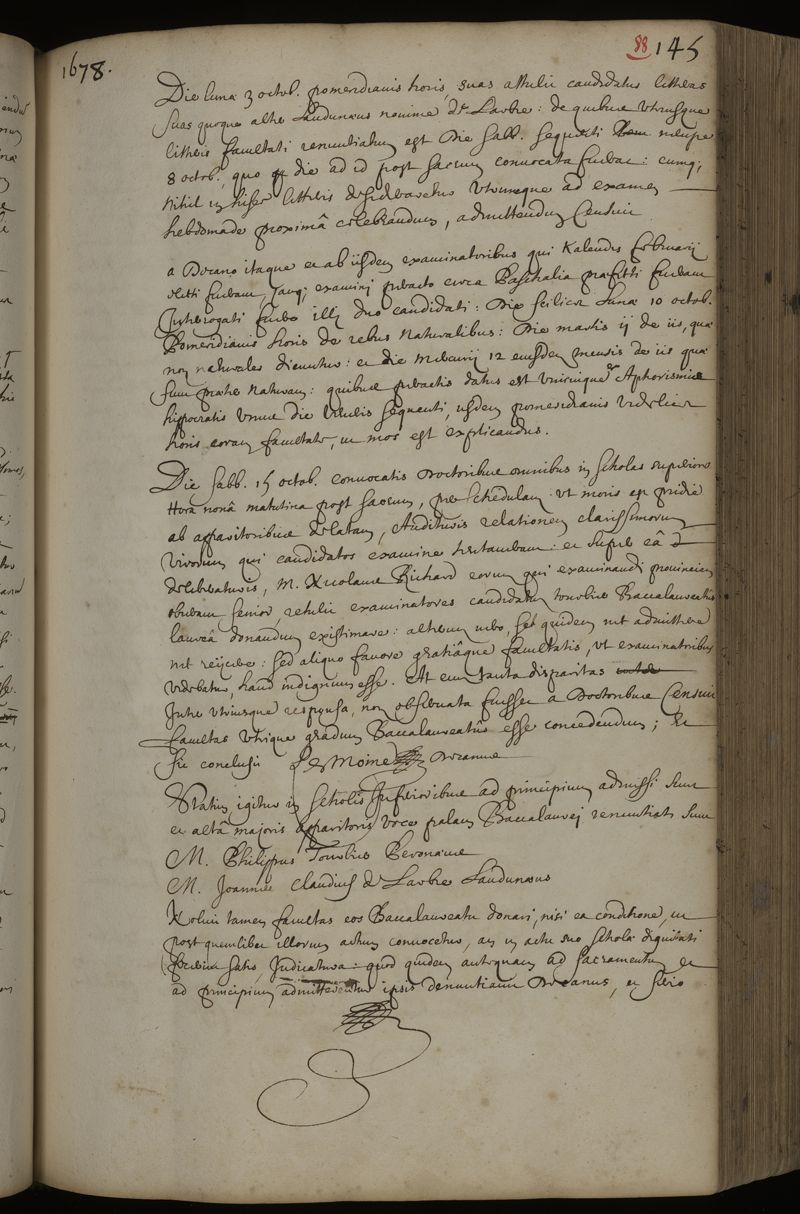 88 145
1678.
Die lunæ 3 octob. pomeridianis horis, suas attulit candidatus litteras
suas quoque alter Laudunæus nomine de Larbre : de quibus utriusque
litteris facultati renuntiatum est Die sabb. sequenti nempe
8 octob. quo die ad id post sacrum convocata fuerat : cumq;
nihil in hisce litteris desideraretur utrumque ad examen
hebdomade proximâ celebrandum, admittendum Censuit
a Decano itaque et ab iisdem examinatoribus qui Kalendis februarij
electi fuerant, examini peracto circa Paschalia præfecti fuerant
Interrogati fuere illi duo candidati : Die scilicet Lunæ 10 octob.
Pomeridianis horis de rebus Naturalibus : Die martis ij de iis, quæ
non naturales dicuntur : et die Mercurij 12 eiusdem mensis de iis quæ
sunt præter naturam : quibus peractis datus est unicuique Aphorismus
hippocratis unus die sequenti, iisdem pomeridianis videlicet
horis coram facultate, ut mos est explicandus.
Die sabb. 15 octob. convocatis Doctoribus omnibus in scholas superiores
Hora nonâ matutina post sacrum, per schedulam ut moris est pridie
ab apparitoribus delatam, Audituris relationem clarissimorum
virorum qui candidatos examine tentarant : et super eâ
deliberaturis, M. Nicolaus Richard eorum qui examinandi provinciam
obierant senior, retulit examinatores candidatum tourbier Baccalaureatus
laureâ donandum existimare : alterum vero, set quidem nec admittere
nec reijcere : sed aliquo favore gratiâque facultatis, ut examinatoribus
videbatur, haud indignum esse. At cum tanta disparitas
inter utriusque responsa, non observata fuisset a Doctoribus Censuit
facultas utrique gradum Baccalaureatûs esse concedendum ; Et
sic conclusit Le Moine Decanus
Statim igitur in scholis inferioribus ad principium admissi sunt
et altâ majoris apparitoris voce palam Baccalaurei renuntiati sunt
M. Philippus Tourbier Peronæus
M. Joannes Claudius de Larbre Laudunæus
Noluit tamen facultas eos Baccalaureatu donari, nisi ea conditione, ut
post quemlibet illorum actum convocetur, an in actu suo scholæ dignitati
fecerint satis, Judicatura : quod quidem antequam ad sacramentum et
ad principium admitterentur ipsis denuntiavit Decanus, et serio